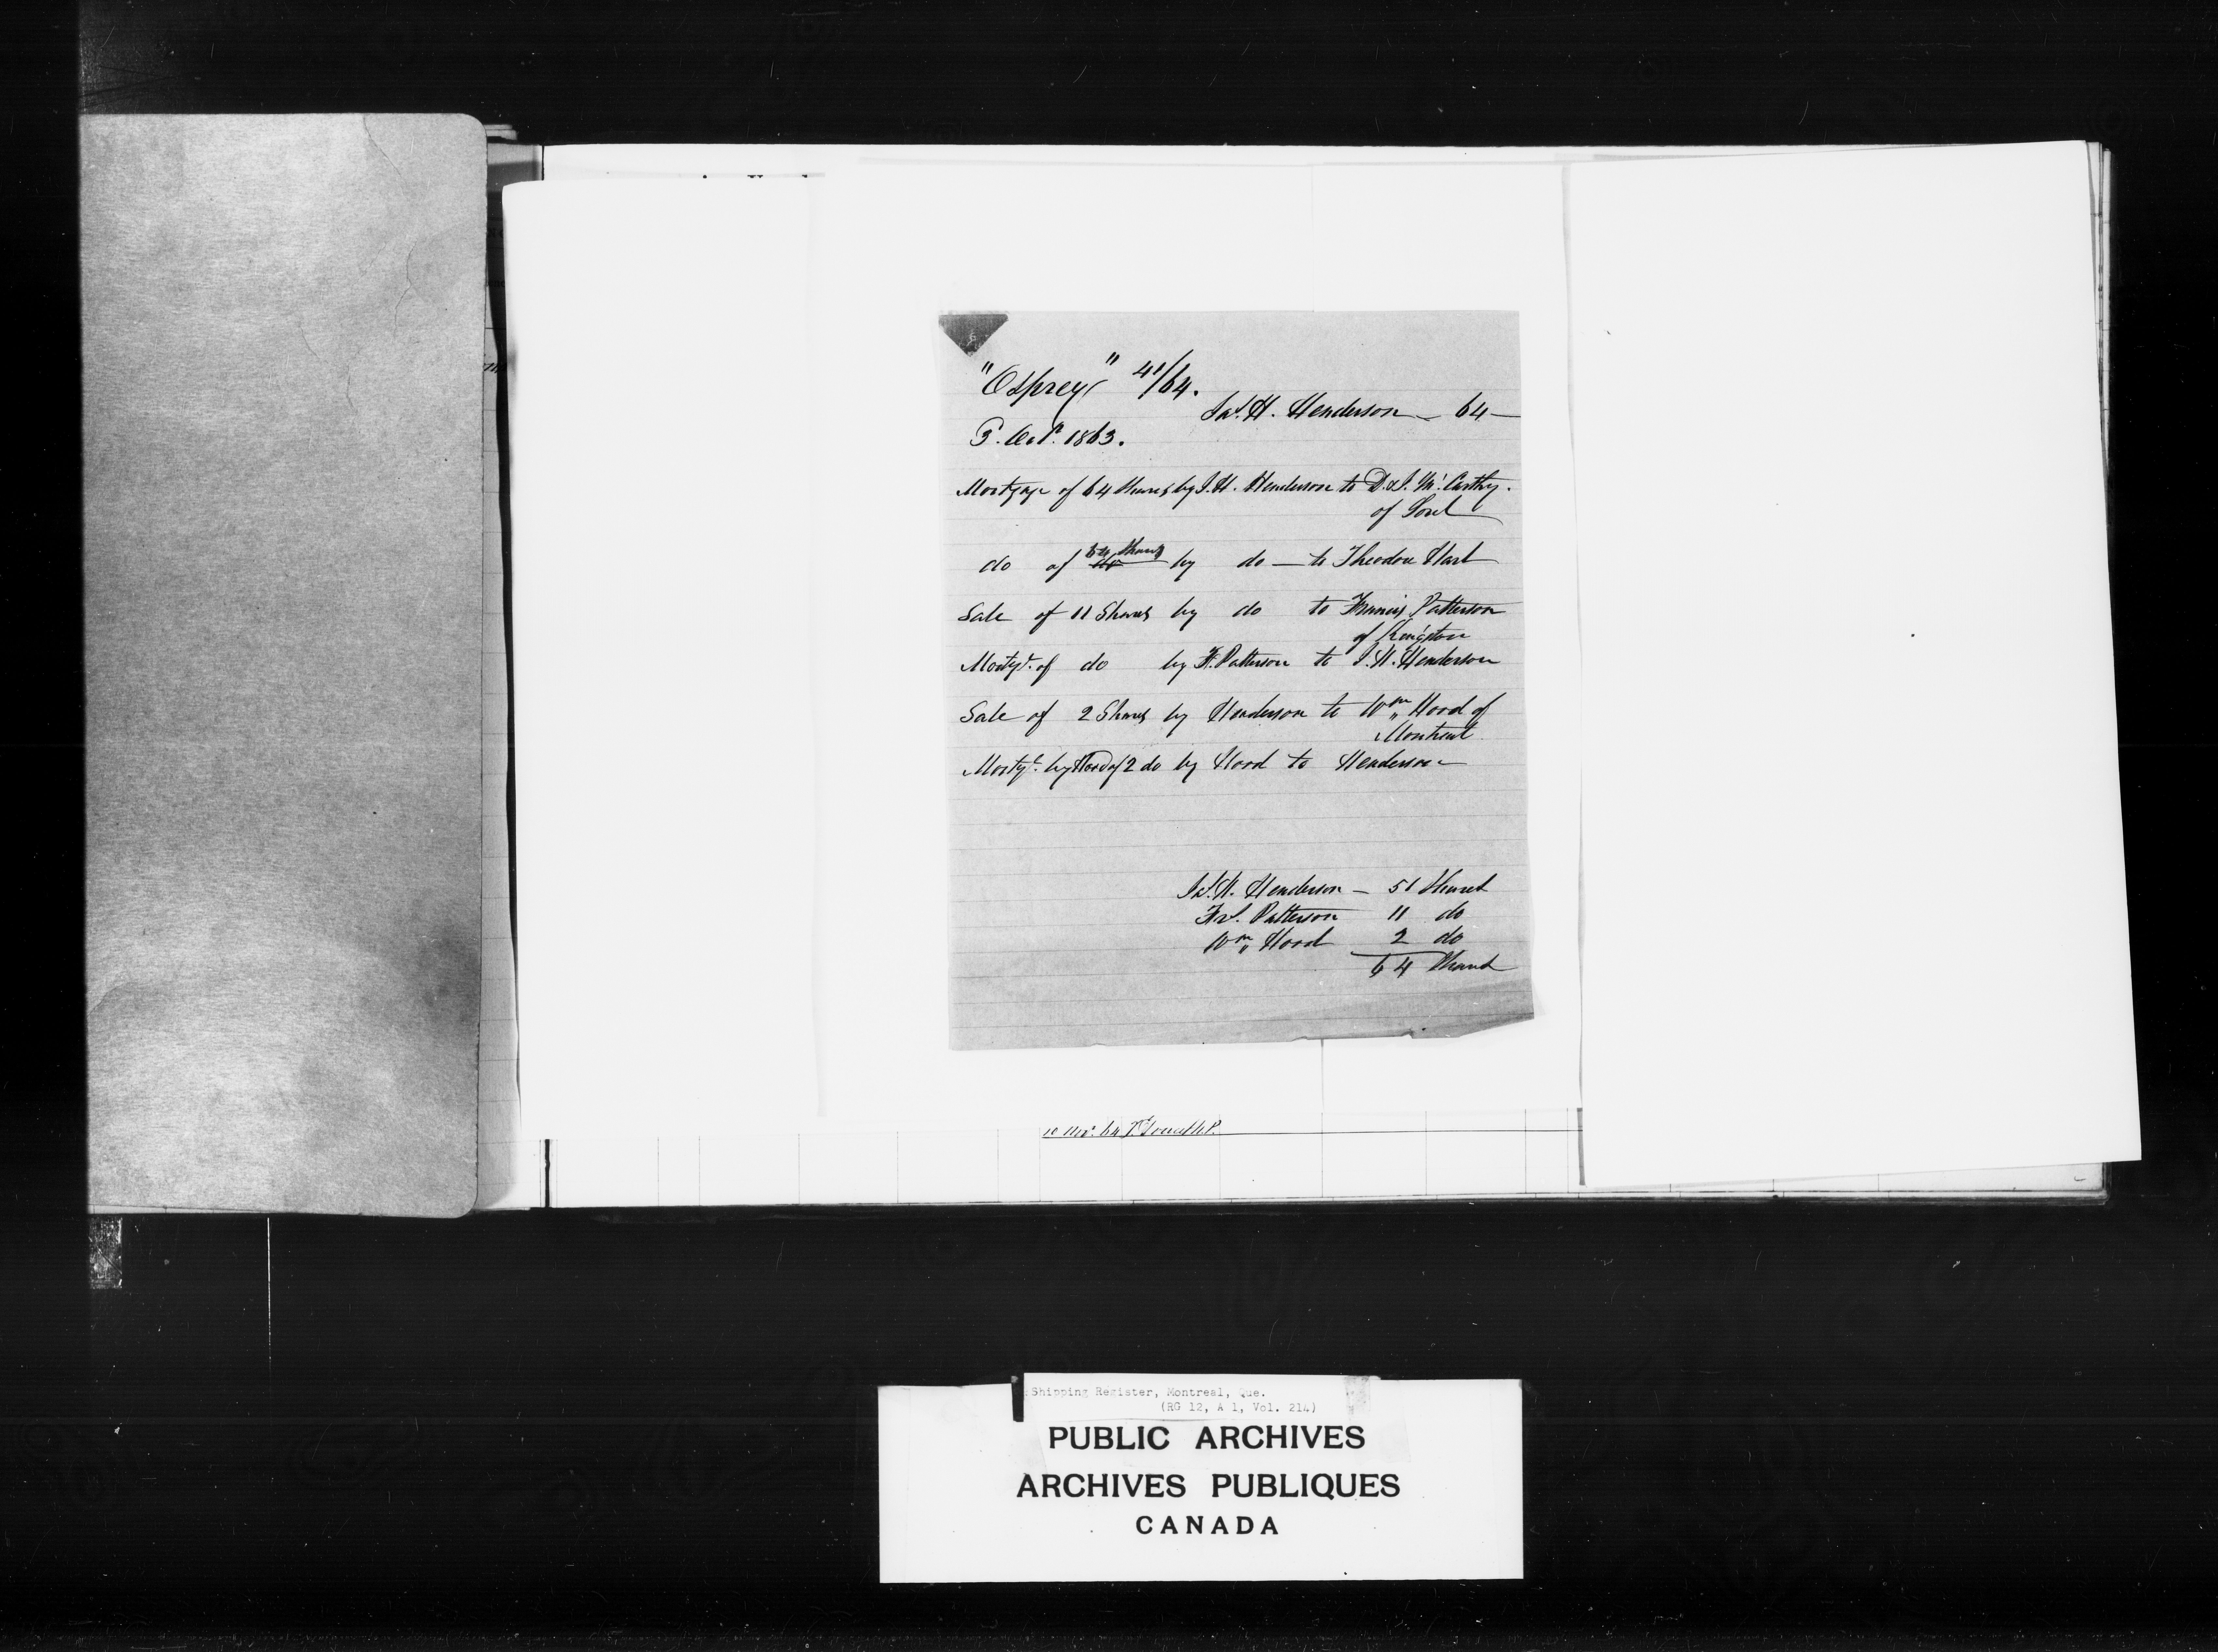 "Osprey" 41/64.
Jas. H. Henderson — 64 —
1863.
Mortgage of 64 Shares by J. H. Henderson to D. & J. McCarthy.
of Sorel
do of 64 Shares do by do — to Theodore Hart
Sale of 11 Shares by do to Francis Patterson
of Kingston
Mortge. of do by F. Patterson to J. H. Henderson
Sale of 2 Shares by Henderson to Wm Hood of
Montreal
Mortge. by Hood of 2 do by Hood to Henderson
Jas. H. Henderson — 51 Shares
Frs. Patterson 11 do
Wm Hood 2 do
64 Shares
10 Novr. 64
Shipping Register, Montreal, Que.
(RG 12, A 1, Vol. 214)
PUBLIC ARCHIVES
ARCHIVES PUBLIQUES
CANADA